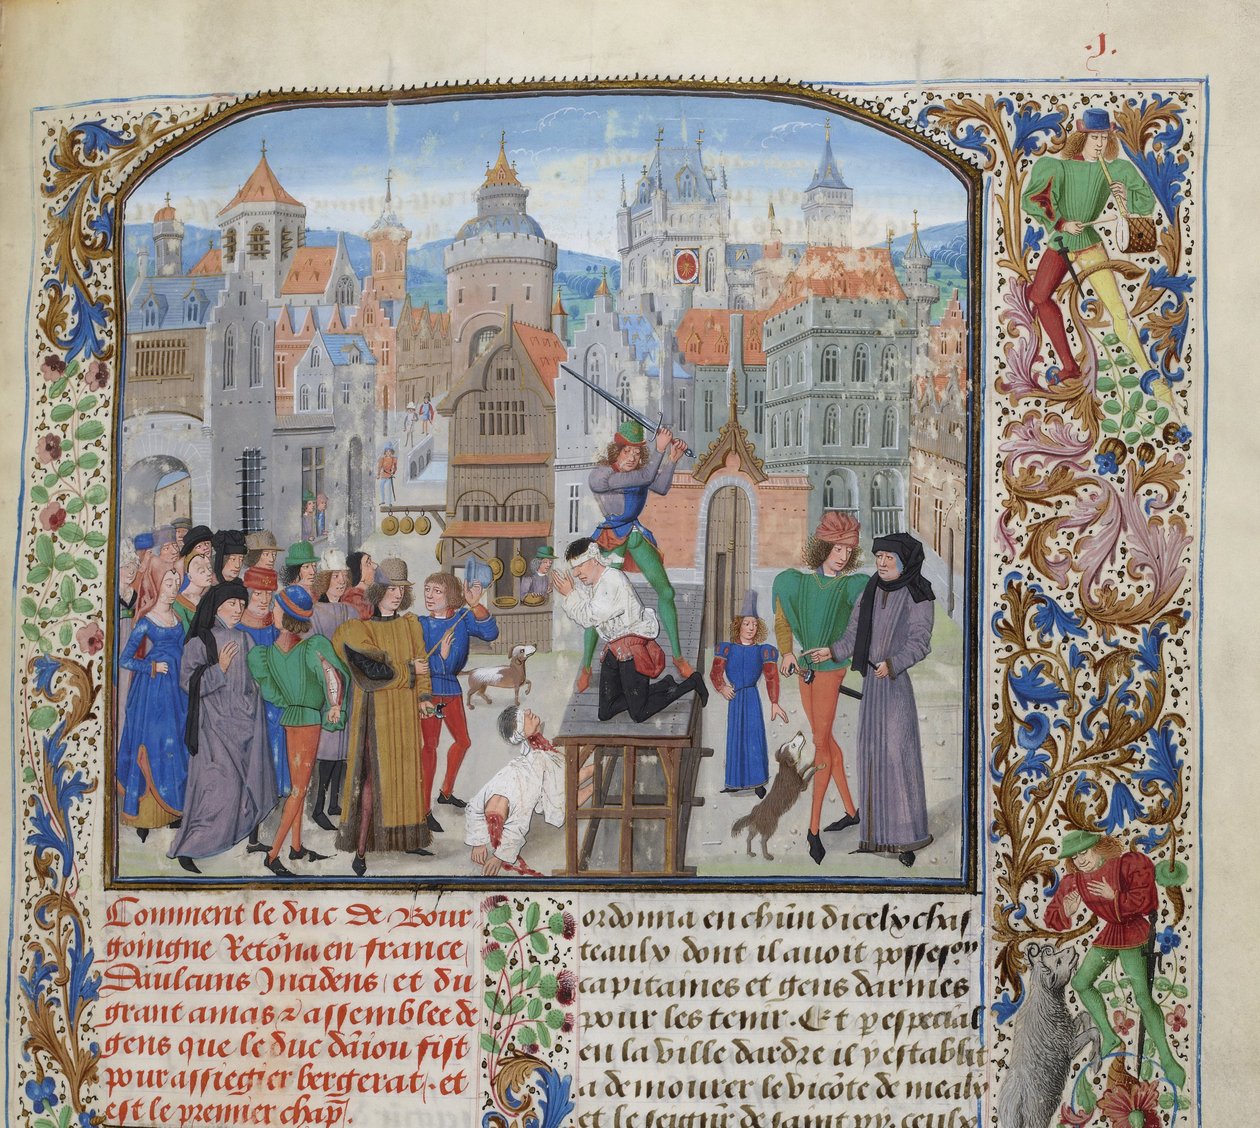 .J.
Comment le duc de Bour
goingne Retōna en france
Daulcuns Incidens et du
grant amas & assemblee de
gens que le duc dāiou fist
pour assiegier bergerat. et
est le premier chapr̃.
ordonna en chūn dicelx chas
teaulx dont il auoit possesōn
capitaines et gens darmes
pour les tenir. Et p especial
en la ville dardre il y establit
a demourer le vicōte de meaulx
et le seignr̃ de saint py. ceulx